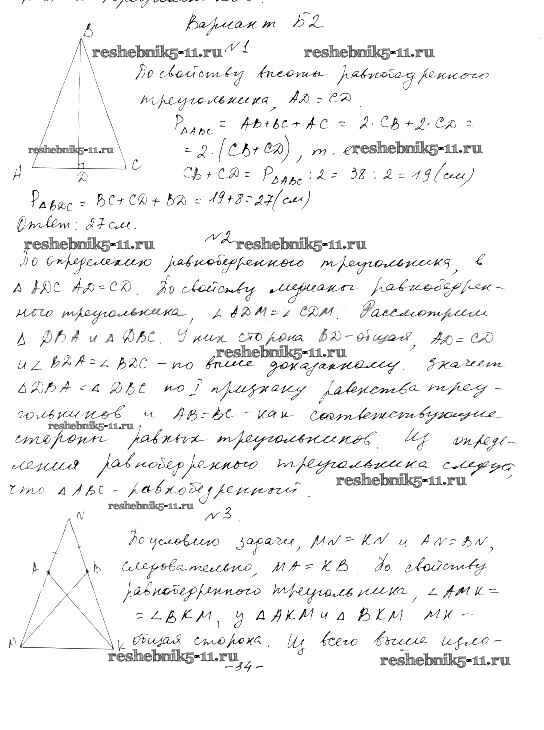 Вариант Б2
reshebnik5-11.ru №1 reshebnik5-11.ru
B
По свойству высоты равнобедренного
треугольника, AD = CD.
P△ABC = AB+BC+AC = 2·CB+2·CD =
reshebnik5-11.ru
= 2·(CB+CD), т. е. reshebnik5-11.ru
A D C
CB+CD = P△ABC : 2 = 38 : 2 = 19 (см)
P△BDC = BC+CD+BD = 19+8 = 27 (см)
Ответ: 27 см.
reshebnik5-11.ru №2 reshebnik5-11.ru
По определению равнобедренного треугольника, в
△ADC AD=CD. По свойству медианы равнобедрен-
ного треугольника, ∠ADM=∠CDM. Рассмотрим
△ DBA и △ DBC. У них сторона BD-общая, AD=CD
reshebnik5-11.ru
и ∠BDA=∠BDC - по выше доказанному. Значит
△DBA=△DBC по I признаку равенства треу-
гольников и AB=BC - как соответствующие
reshebnik5-11.ru
стороны равных треугольников. Из опреде-
ления равнобедренного треугольника следует,
reshebnik5-11.ru
что △ABC - равнобедренный.
reshebnik5-11.ru
№3.
N
По условию задачи, MN=KN и AN=BN,
A B
следовательно, MA=KB. По свойству
равнобедренного треугольника, ∠AMK=
=∠BKM, у △AKM и △BKM MK-
M K
общая сторона. Из всего выше изло-
reshebnik5-11.ru reshebnik5-11.ru
-34-